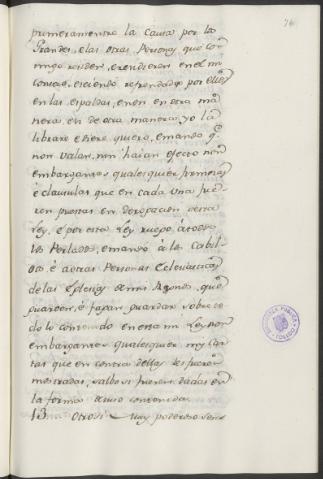 74
primeramentre la Causa por los
Grandes, e las otras Personas que con
migo residen, e residieren en el mi
Consejo, e seiendo refrendadas por ellos
en las espaldas, e non en otra ma
nera, en de otra manera yo la
librare e diere quiero, e mando qe
non valan, nin haian efecto non
embargantes qualesquier firmezas
è clausulas que en cada una fue-
ren puestas en derogacion desta
ley, è por esta ley ruego à todos
los Perlados, e mando à los Cabil-
dos è à otras Personas Eclesiasticas
de las Eglesias de mis Regnos, que
guarden, è fagan guardar sobre to
do lo contenido en esta mi Ley non
embargantes qualesquier mis Car
tas que en contra dellas les fueren
mostradas, salbo si fueren dadas en
la forma de uso contenida.
13. Otrosi muy poderoso Señ
BIBLIOTECA PUBLICA
TOLEDO